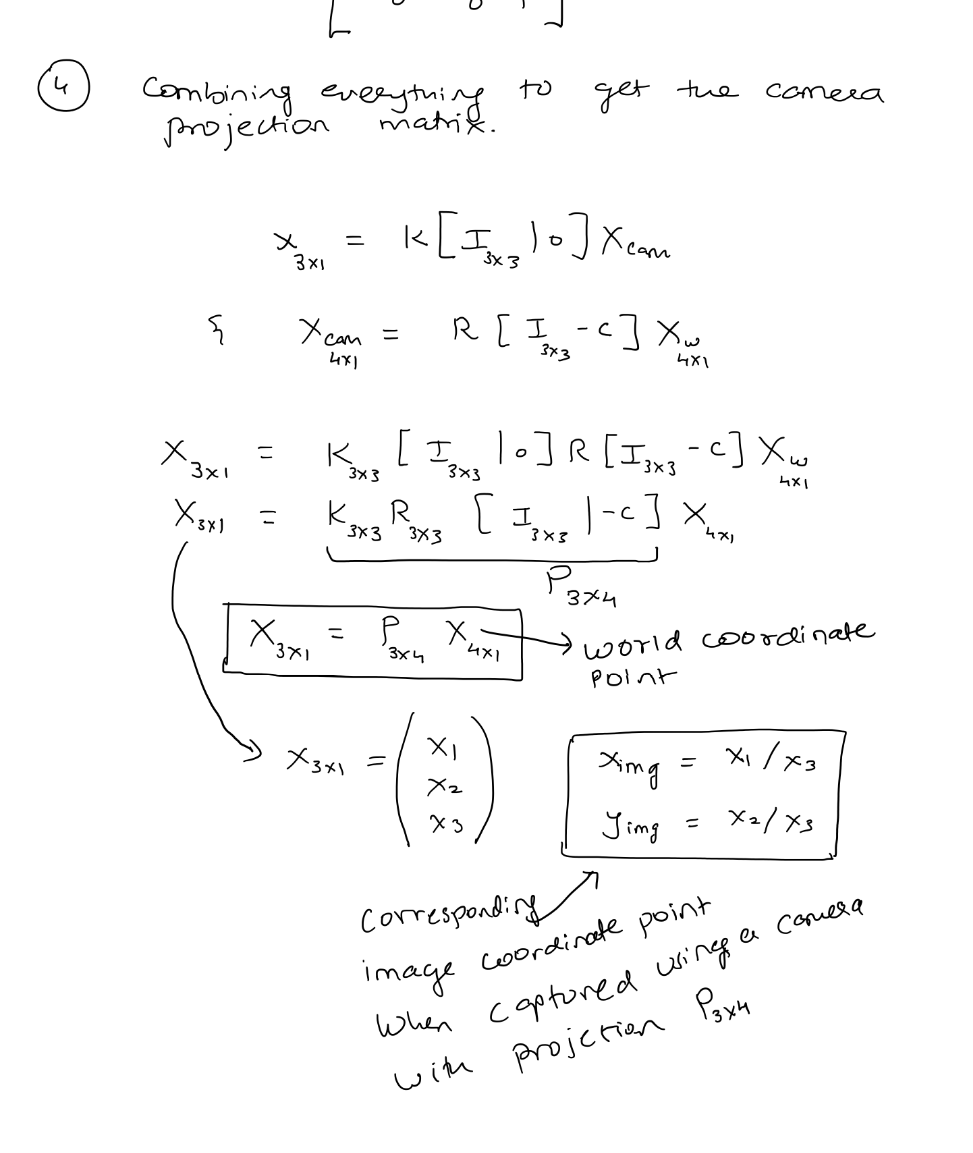 4 Combining everything to get the camera
projection matrix.
x 3x1 = K [ I 3x3 | 0 ] X cam
{ X cam 4x1 = R [ I 3x3 -C ] X w 4x1
X 3x1 = K 3x3 [ I 3x3 | 0 ] R [ I 3x3 -C ] X w 4x1
X 3x1 = K 3x3 R 3x3 [ I 3x3 | -C ] X 4x1
P 3x4
X 3x1 = P 3x4 X 4x1 → world coordinate
point
X 3x1 = ( x1 x2 x3 )
ximg = x1 / x3
yimg = x2 / x3
corresponding
image coordinate point
when captured using a camera
with projection P 3x4